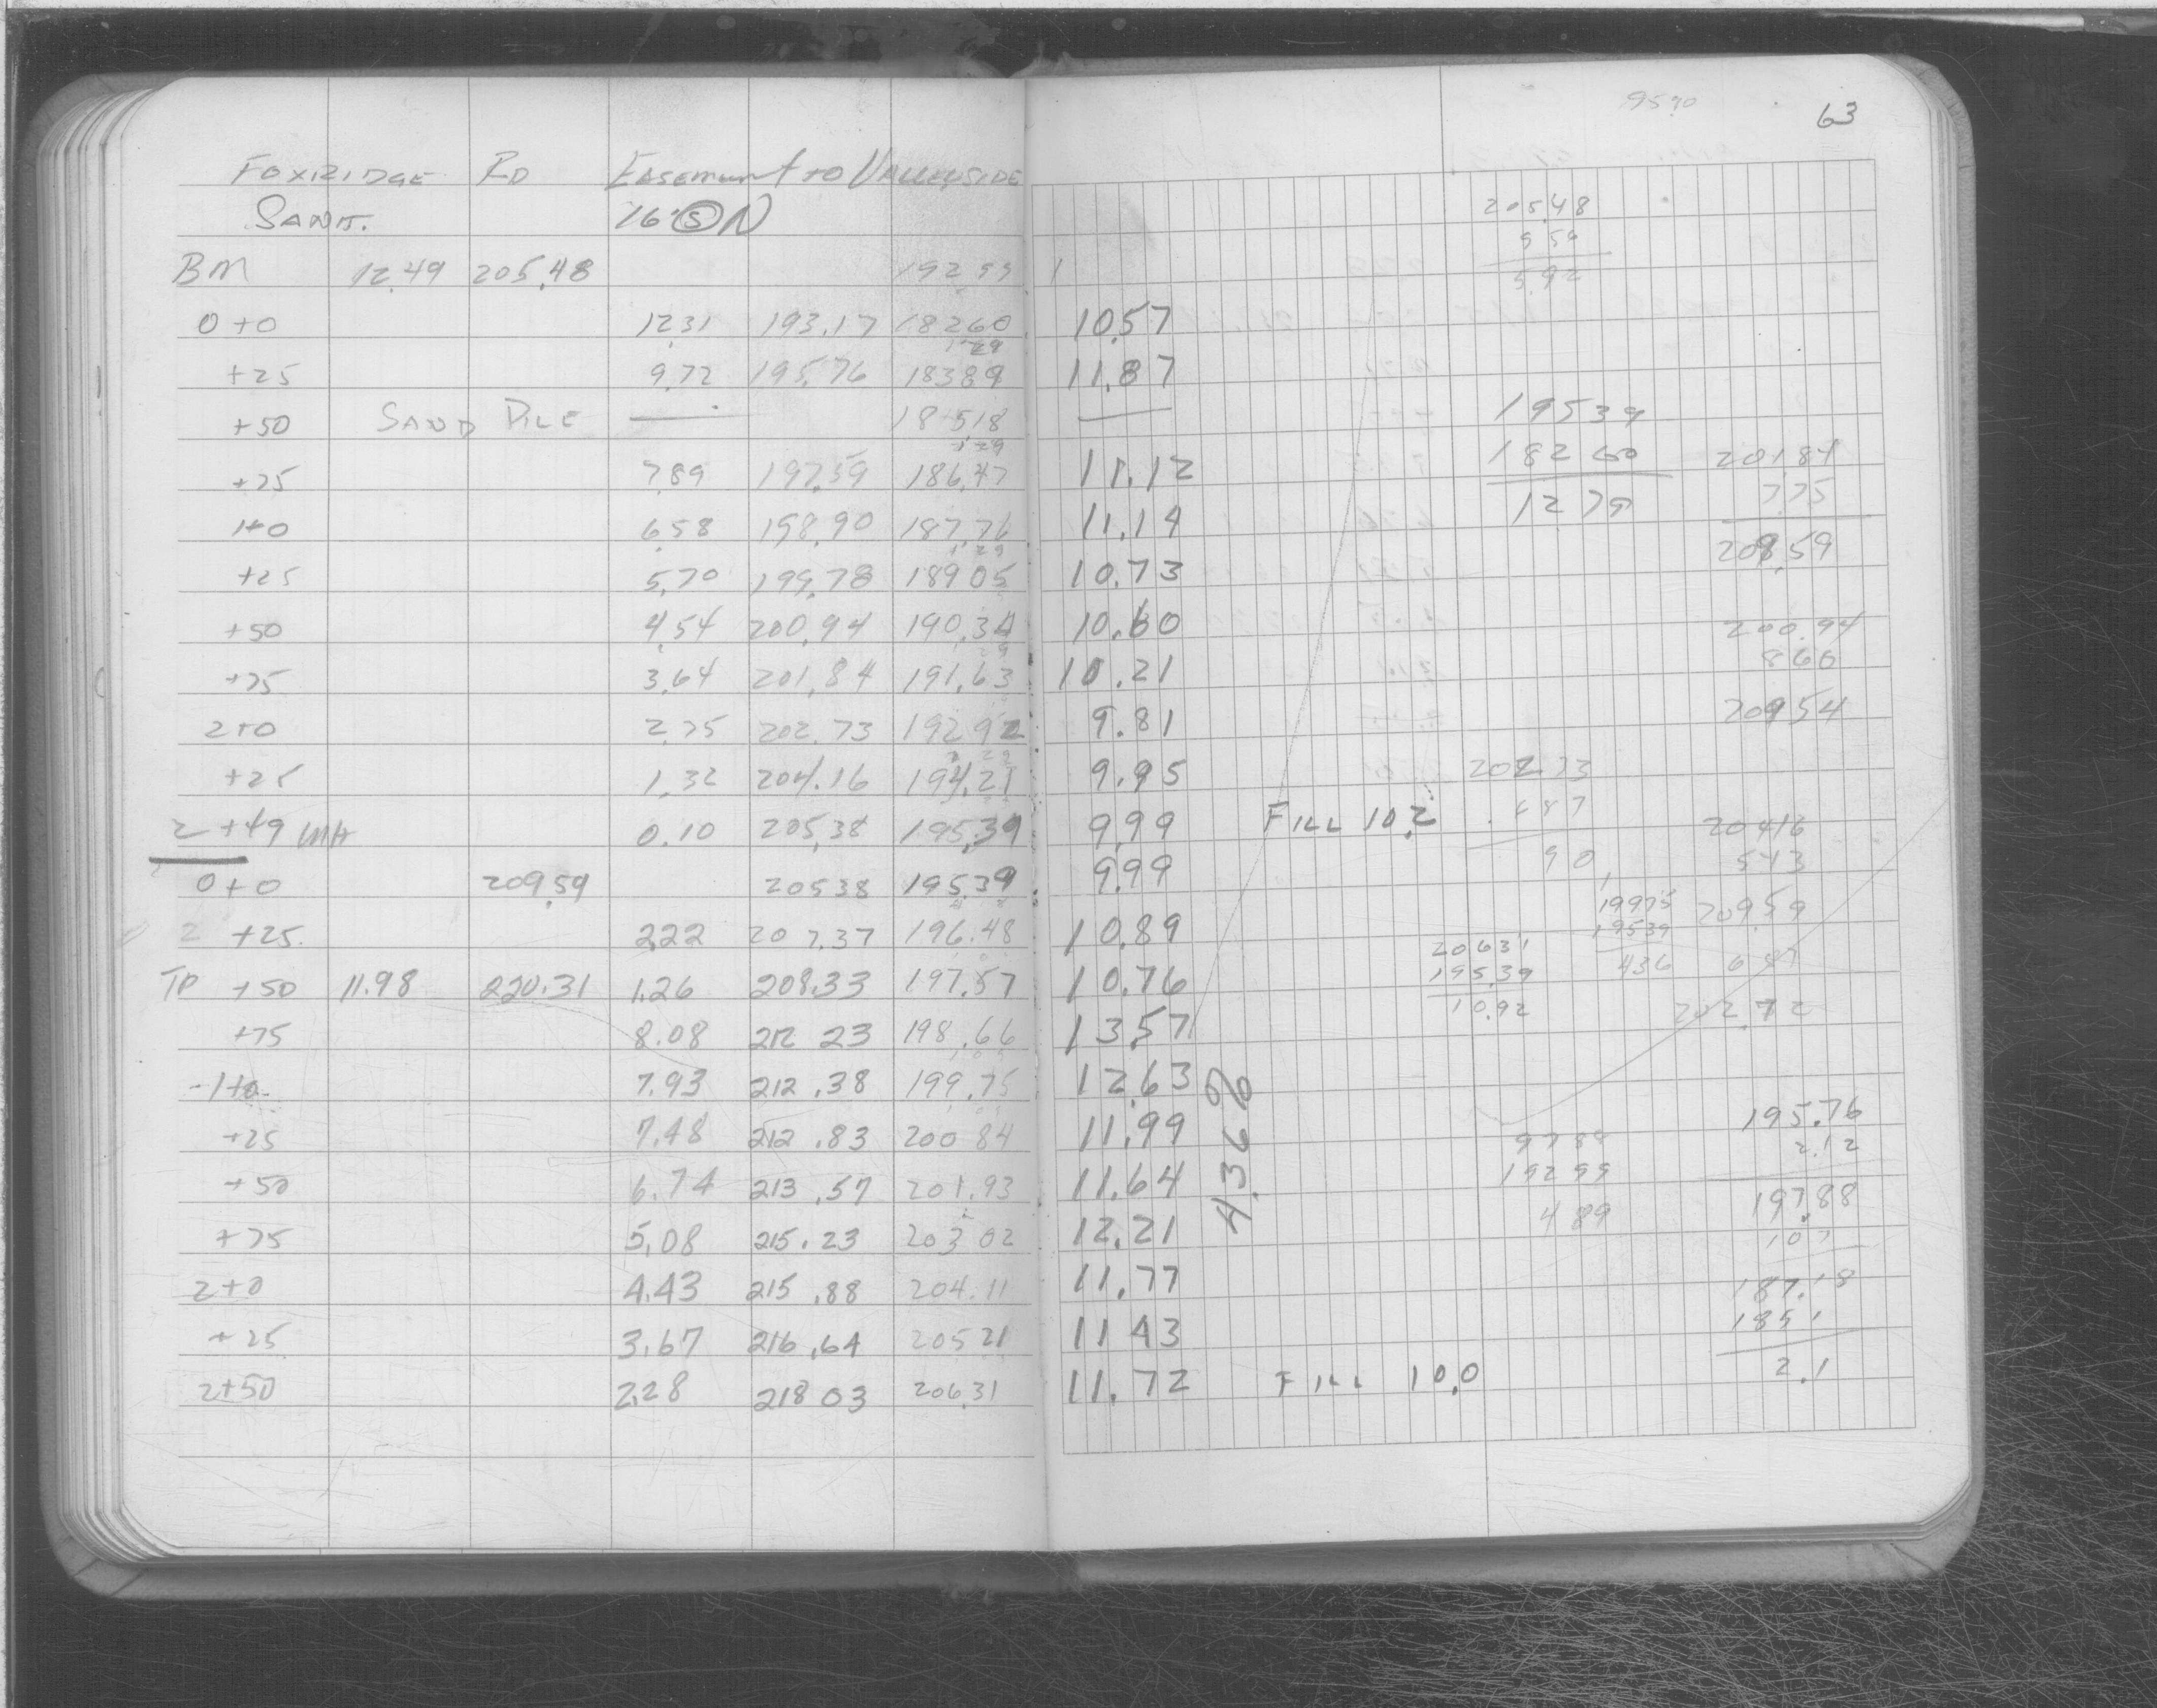 63
FOXRIDGE RD EASEMENT TO VALLEYSIDE
SANIT. 16' S N
BM 12.49 205.48 192.99
0+0 12.31 193.17 182.60 10.57
1.29
+25 9.72 195.76 183.89 11.87
+50 SAND PILE — 185.18 —
1.29
+75 7.89 197.59 186.47 11.12
1+0 6.58 198.90 187.76 11.14
1.29
+25 5.70 199.78 189.05 10.73
+50 4.54 200.94 190.34 10.60
+75 3.64 201.84 191.63 10.21
2+0 2.75 202.73 192.92 9.81
+25 1.32 204.16 194.21 9.95
2+49 MH 0.10 205.38 195.39 9.99 FILL 10.2
0+0 209.59 205.38 195.39 9.99
+25 2.22 207.37 196.48 10.89
TP +50 11.98 220.31 1.26 208.33 197.57 10.76
+75 8.08 212 23 198.66 13.57
1+0 7.93 212.38 199.75 12.63
+25 7.48 212.83 200 84 11.99
+50 6.74 213.57 201.93 11.64
+75 5.08 215.23 203 02 12.21
2+0 4.43 215.88 204.11 11.77
+25 3.67 216.64 205 21 11 43
2+50 2.28 218 03 206.31 11.72 FILL 10.0
4.36%
205.48
195 39
182 60
12 79
201 84
7 75
209.59
200.94
8 60
209 54
202.73
6 87
204 16
5 43
209 59
6 87
202.72
199 75
195 39
4 36
206 31
195.39
10.92
197 88
192 99
4 89
195.76
2.12
197.88
187.18
185 1
2.1